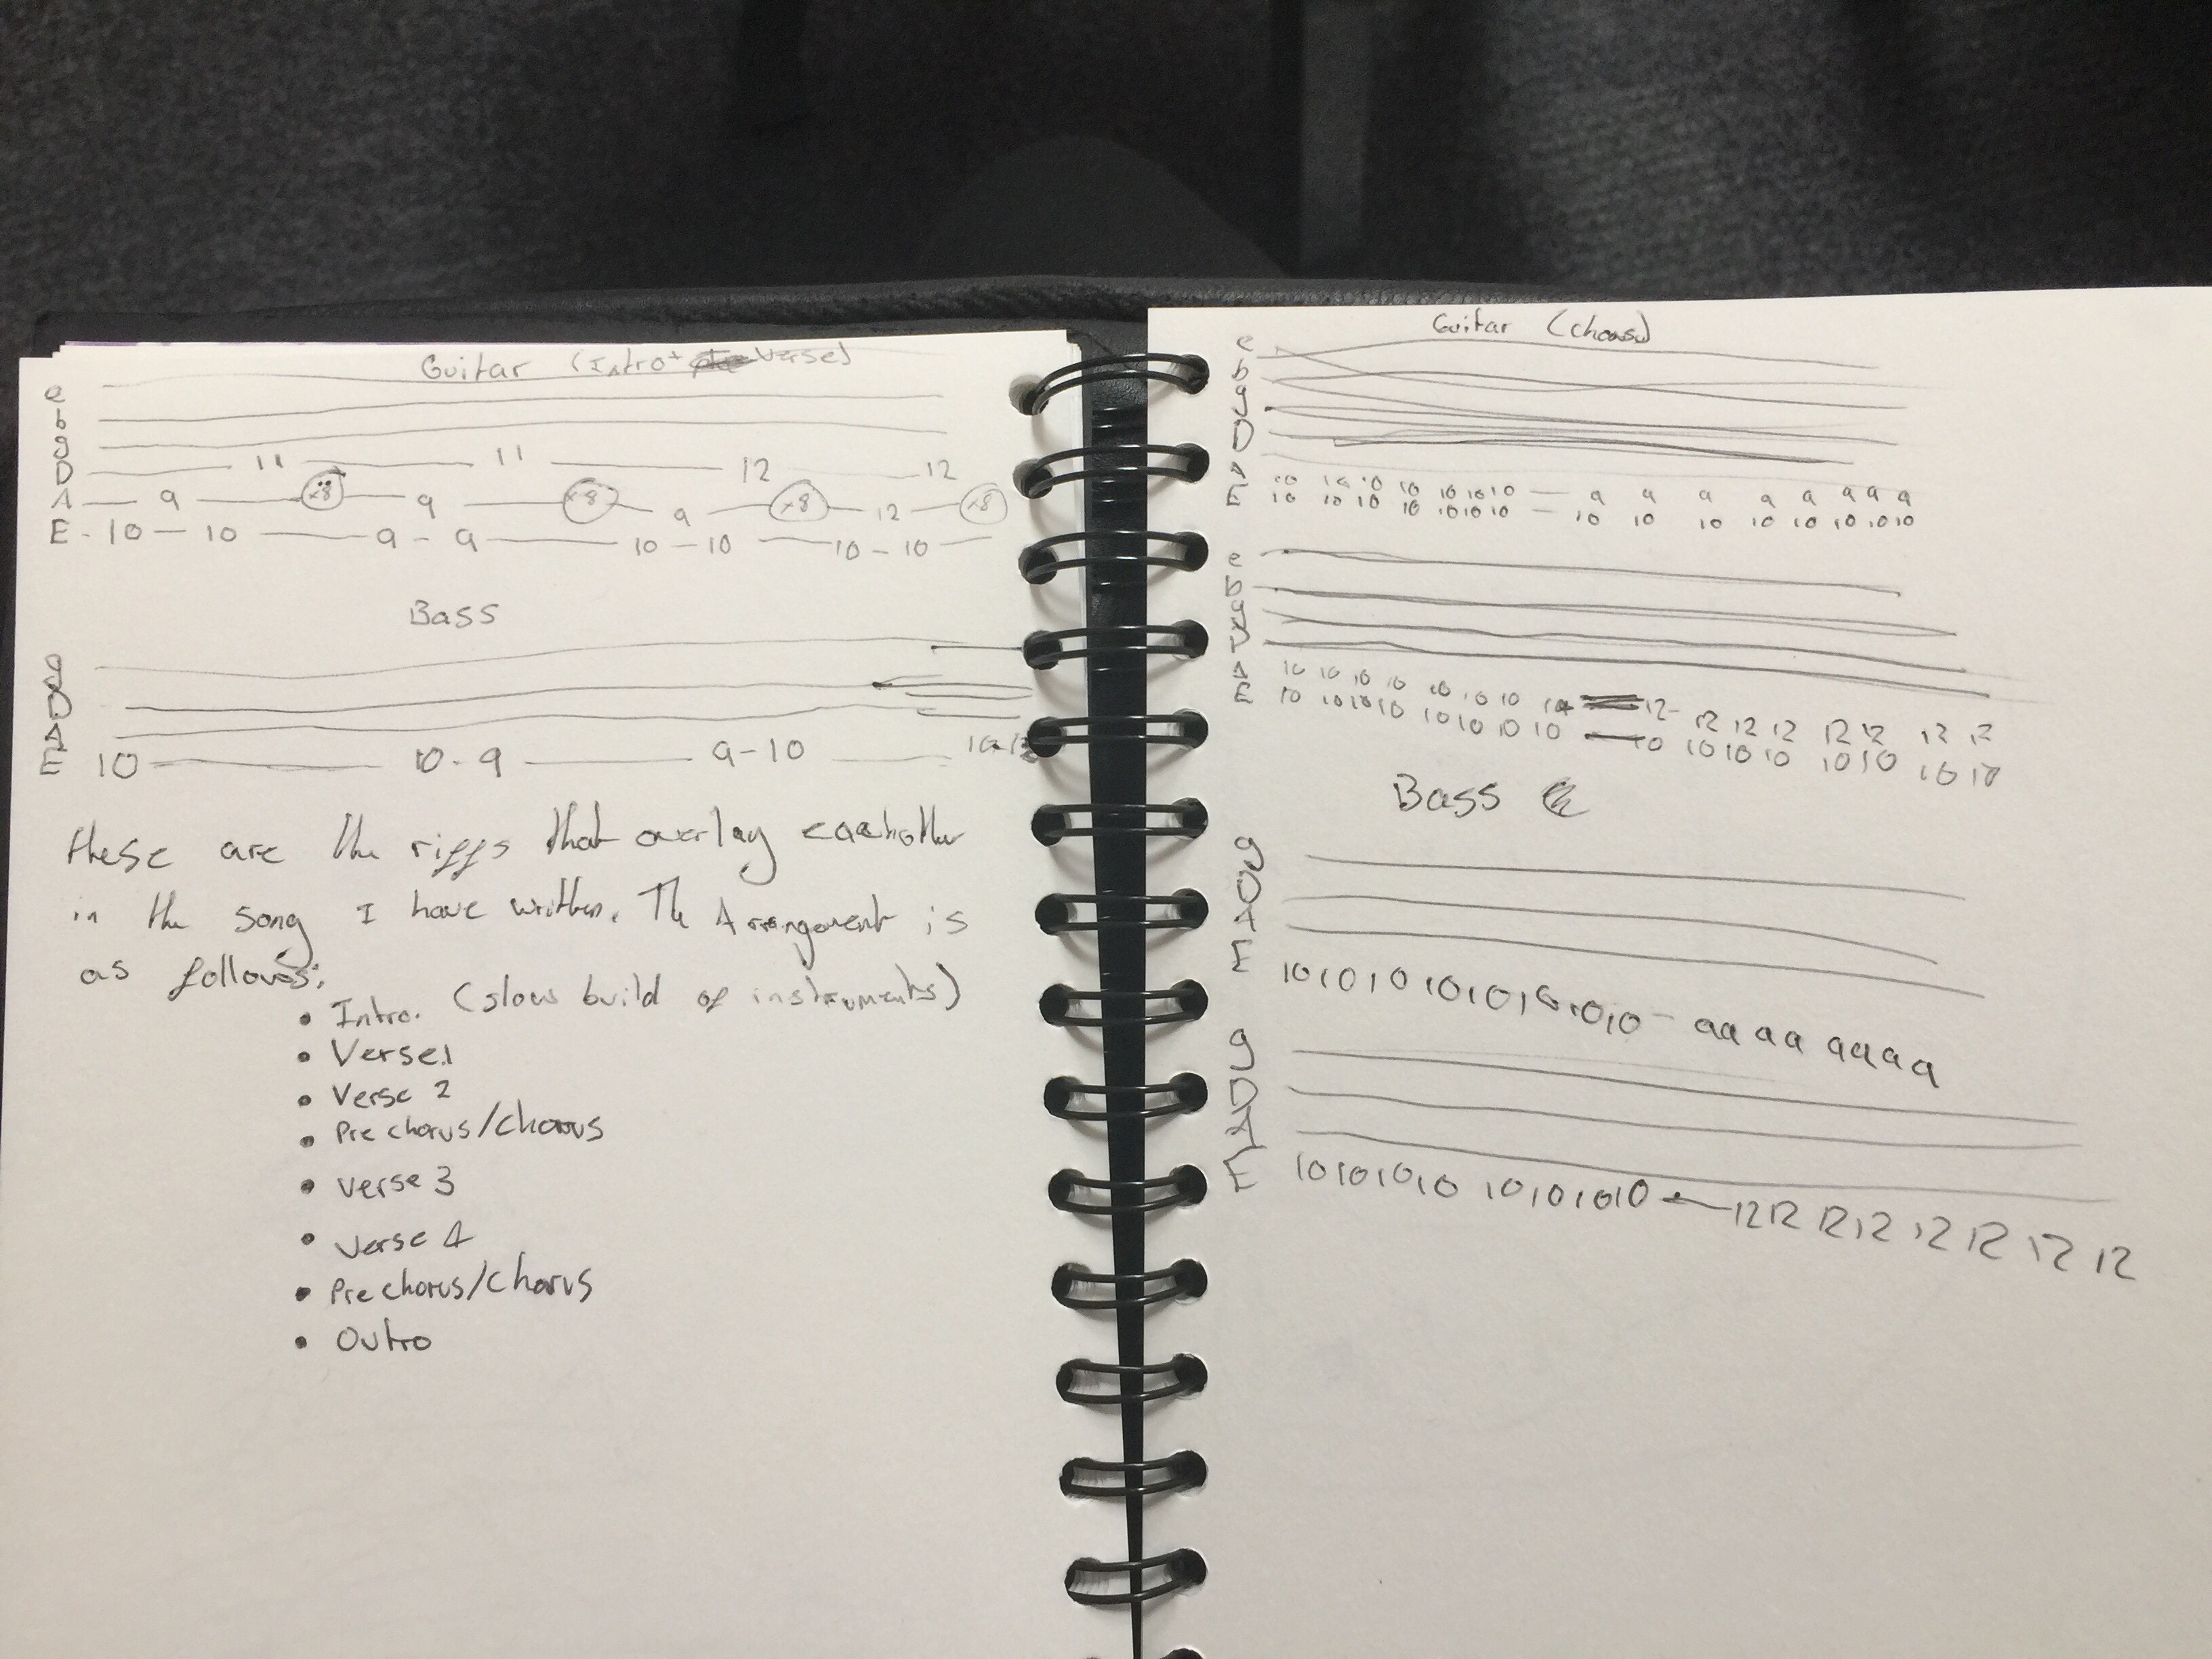 Guitar (Intro + Verse)
e
b
g
D 11 11 12 12
A 9 x8 9 x8 9 x8 12 x8
E - 10 - 10 9 - 9 10 - 10 10 - 10
Bass
g
D
A
E 10 10 - 9 9 - 10
these are the riffs that overlay eachother
in the song I have written. The Arrangement is
as follows:
• Intro. (slow build of instruments)
• Verse 1
• Verse 2
• Pre chorus/Chorus
• Verse 3
• Verse 4
• Pre chorus/Chorus
• Outro
Guitar (chorus)
e
b
g
D
A 10 10 10 10 10 10 10 — 9 9 9 9 9 9 9 9
E 10 10 10 10 10 10 10 — 10 10 10 10 10 10 10 10
e
b
g
D
A 10 10 10 10 10 10 10 12 12 12 12 12 12 12 12
E 10 10 10 10 10 10 10 10 — 10 10 10 10 10 10 10 10
Bass
g
D
A
E 10 10 10 10 10 10 10 10 - 99 99 9999
g
D
A
E 10 10 10 10 10 10 10 10 — 12 12 12 12 12 12 12 12